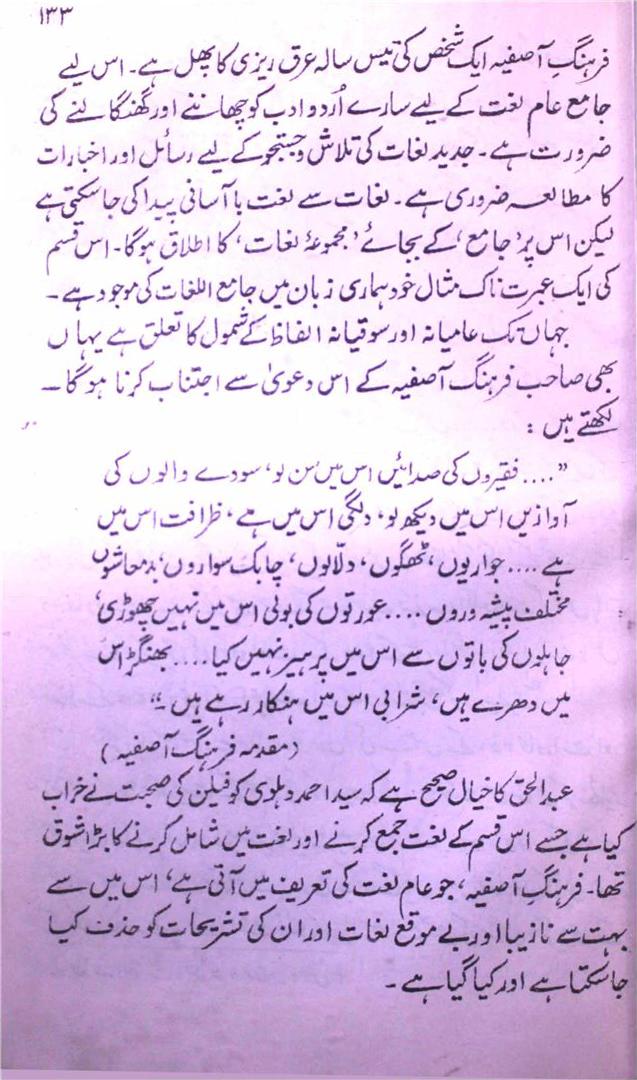 ۱۳۳
فرہنگِ آصفیہ ایک شخص کی تیس سالہ عرق ریزی کا پھل ہے۔ اس لیے
جامع عام لغت کے لیے سارے اُردو ادب کو چھاننے اور کھنگالنے کی
ضرورت ہے۔ جدید لغات کی تلاش و جستجو کے لیے رسائل اور اخبارات
کا مطالعہ ضروری ہے۔ لغات سے لغت باآسانی پیدا کی جاسکتی ہے
لیکن اس پر ’جامع‘ کے بجائے ’مجموعۂ لغات‘ کا اطلاق ہوگا۔ اس قسم
کی ایک عبرت ناک مثال خود ہماری زبان میں جامع اللغات کی موجود ہے۔
جہاں تک عامیانہ اور سوقیانہ الفاظ کے شمول کا تعلق ہے یہاں
بھی صاحب فرہنگ آصفیہ کے اس دعویٰ سے اجتناب کرنا ہوگا۔
لکھتے ہیں :
”.... فقیروں کی صدائیں اس میں سُن لو، سودے والوں کی
آوازیں اس میں دیکھ لو، دلگی اس میں ہے، ظرافت اس میں
ہے .... جواریوں، ٹھگوں، دلّالوں، چابک سواروں، بدمعاشوں
مختلف پیشہ وروں .... عورتوں کی بولی اس میں نہیں چھوڑی،
جاہلوں کی باتوں سے اس میں پرہیز نہیں کیا .... بھنگڑ اس
میں دھرے ہیں، شرابی اس میں ہنکار رہے ہیں۔“
(مقدمہ فرہنگ آصفیہ)
عبدالحق کا خیال صحیح ہے کہ سید احمد دہلوی کو فیلن کی صحبت نے خراب
کیا ہے جسے اس قسم کے لغت جمع کرنے اور لغت میں شامل کرنے کا بڑا شوق
تھا۔ فرہنگِ آصفیہ، جو عام لغت کی تعریف میں آتی ہے، اس میں سے
بہت سے نازیبا اور بے موقع لغات اور ان کی تشریحات کو حذف کیا
جاسکتا ہے اور کیا گیا ہے۔